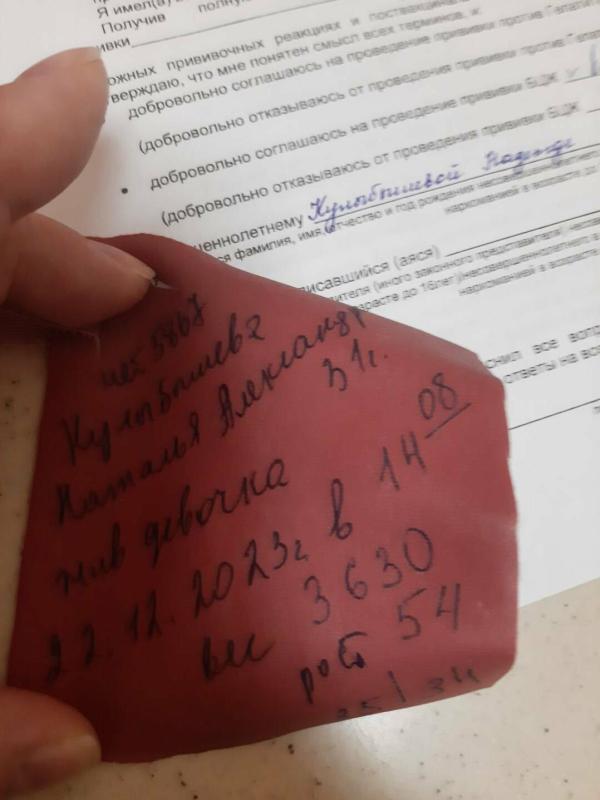 Я имел(а)
Получив полну
ивки
ожных прививочных реакциях и поствакцина
тверждаю, что мне понятен смысл всех терминов, и:
добровольно соглашаюсь на проведение прививки против Гепати
(добровольно отказываюсь от проведения прививки против Гепат
добровольно соглашаюсь на проведение прививки БЦЖ
• (добровольно отказываюсь от проведения прививки БЦЖ
шеннолетнему Кулыбышевой Надежде
ся фамилия, имя, отчество и год рождения несовершеннолетнего
наркоманией в возрасте до
писавшийся (аяся)
дителя (иного законного представителя) несо
возрасте до 16лет)(несовершеннолетнего в
наркоманией в возрасте
снил все вопр
ответы на все
5867
Кулыбышева
Наталья Александр
31г.
жив девочка
22.12.2023г в 14 08
вес 3630
рост 54
35 / 34